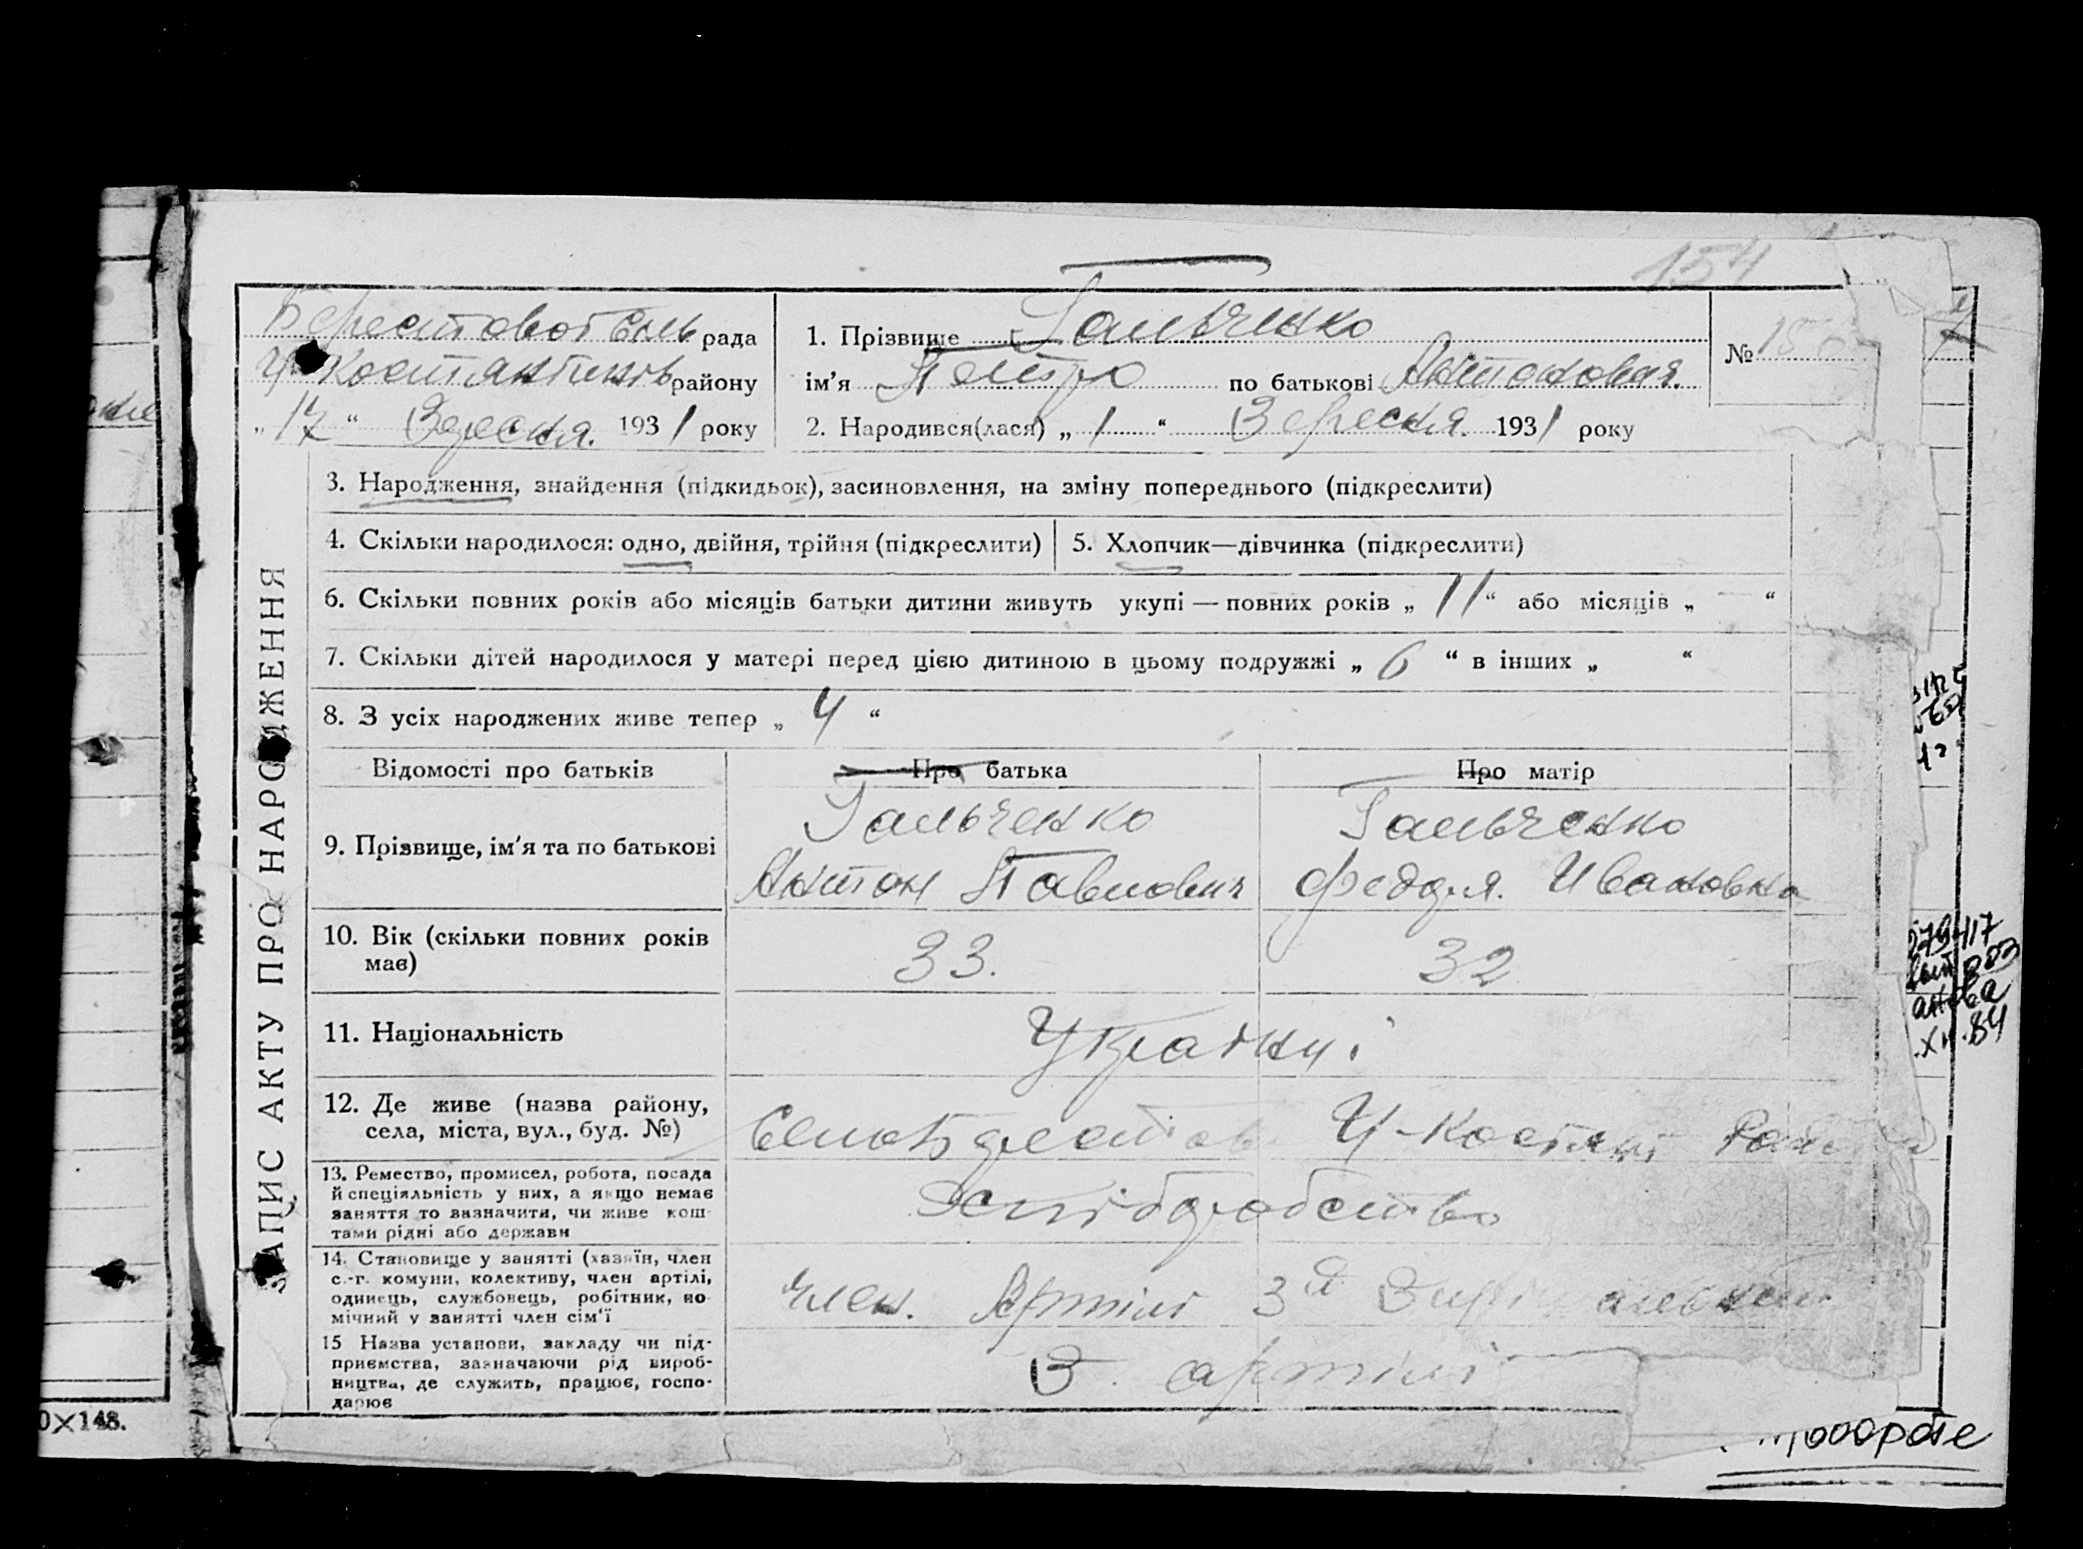 154
Берестовот Сель рада
Ч Костянтинів району
„ 17 “ Вересня. 1931 року
1. Прізвище Гальченко
ім’я Петро по батькові Антоновия.
№ 156
2. Народився(лася) „ 1 “ Вересня 1931 року
ЗАПИС АКТУ ПРО НАРОДЖЕННЯ
3. Народження, знайдення (підкидьок), засиновлення, на зміну попереднього (підкреслити)
4. Скільки народилося: одно, двійня, трійня (підкреслити)
5. Хлопчик—дівчинка (підкреслити)
6. Скільки повних років або місяців батьки дитини живуть укупі — повних років „ 11 “ або місяців „ — “
7. Скільки дітей народилося у матері перед цією дитиною в цьому подружжі „ 6 “ в інших „ “
8. З усіх народжених живе тепер „ 4 “
Відомості про батьків
Про батька
Про матір
9. Прізвище, ім’я та по батькові
Гальченко
Антон Павлович
Гальченко
Федора. Ивановна
10. Вік (скільки повних років має)
33.
32
11. Національність
Українці
12. Де живе (назва району,
села, міста, вул., буд. №)
Ч-Костянт
13. Ремество, промисел, робота, посада
й спеціяльність у них, а якщо немає
заняття то визначити, чи живе кош-
тами рідні або держави
14. Становище у занятті (хазяїн, член
с.-г. комуни, колективу, член артілі,
одинець, службовець, робітник, по-
мічний у занятті член сім’ї
член. Артілі 3й
15 Назва установи, закладу чи під-
приємства, зазначаючи рід вироб-
ництва, де служить, працює, госпо-
дарює
В. артілі
0×148.